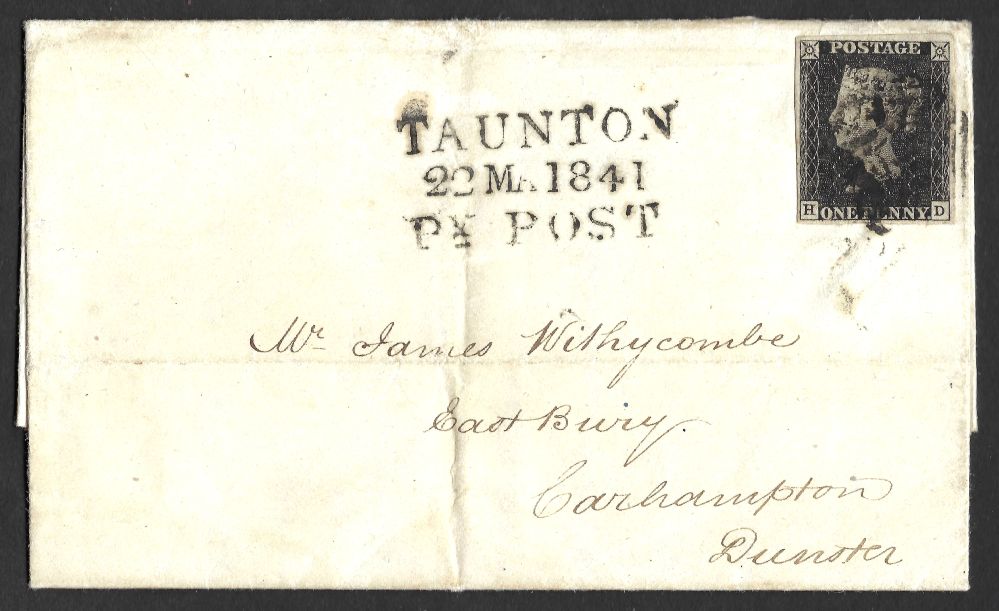 POSTAGE
TAUNTON
22 MA 1841
PY POST
H ONE PENNY D
Mr James Withycombe
East Bury.
Carhampton
Dunster